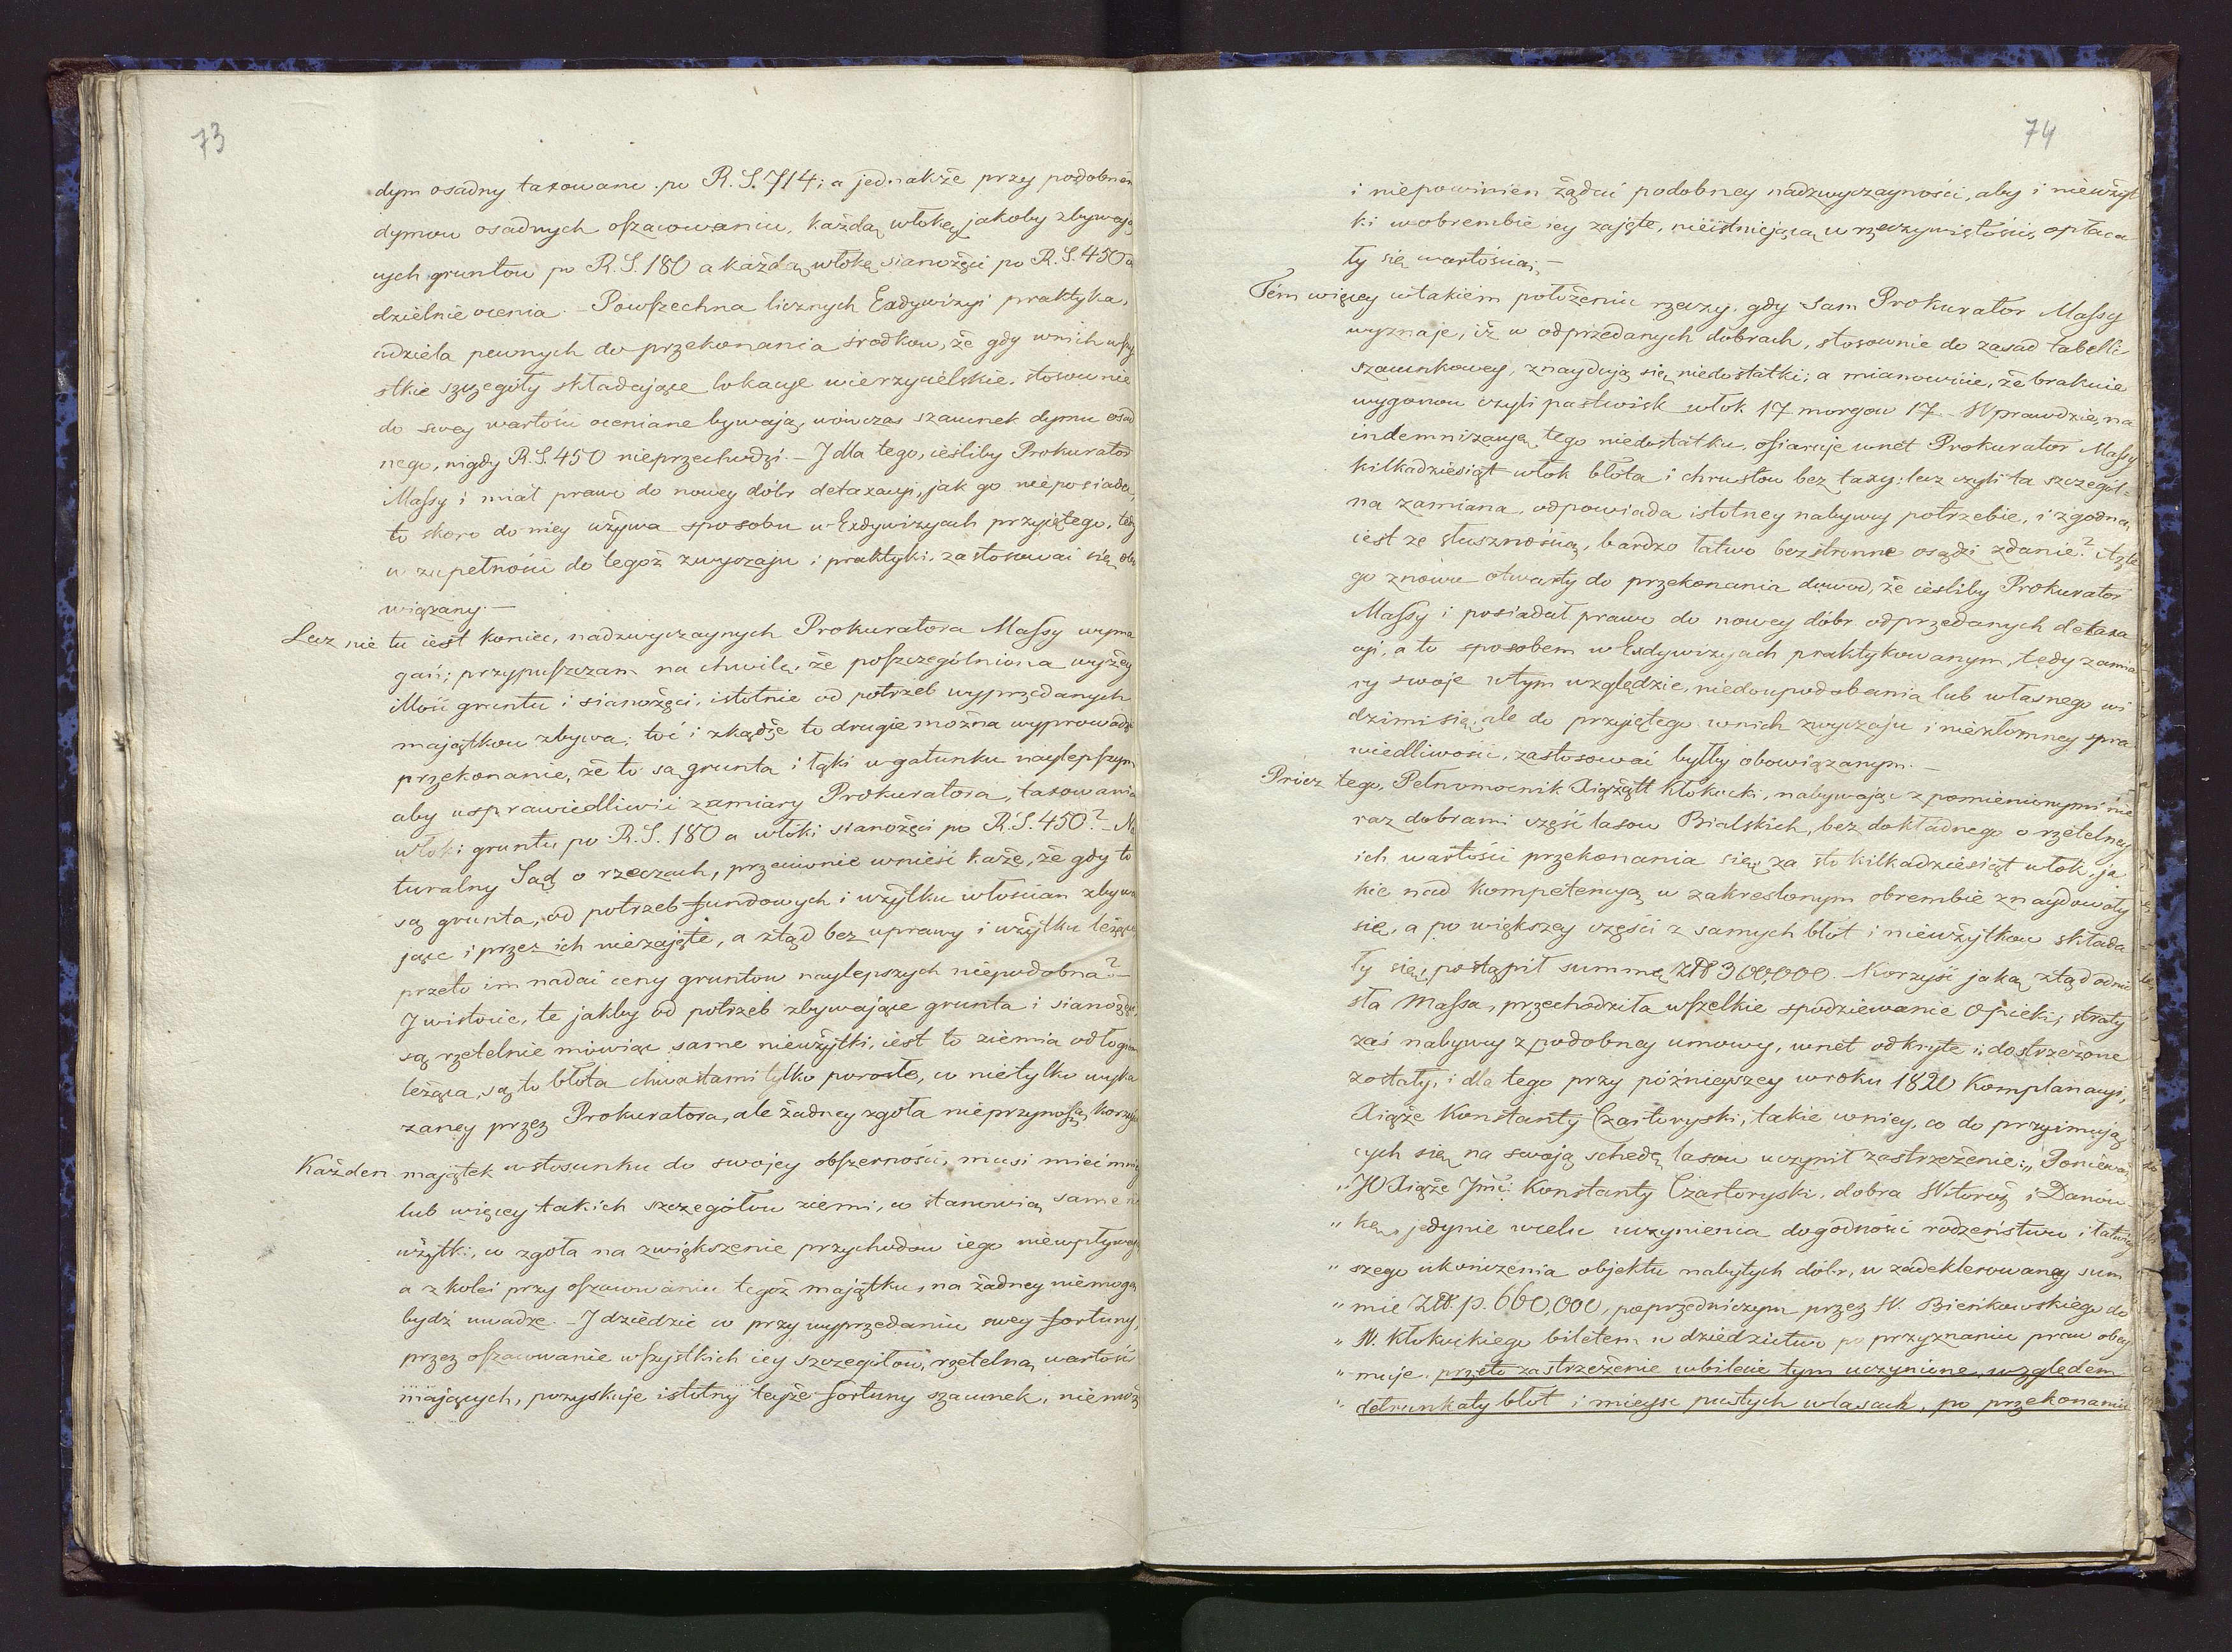 73
dym osadny taxowane po R. S. 714; a jednakże przy podobném
dymow osadnych oszacowaniu, każdą włokę jakoby zbywają
cych gruntow po R. S. 180 a każdą włokę sianożęci po R. S. 450
dzielnie ocenia. – Powszechna licznych Exdywizyi praktyka,
udziela pewnych do przekonania srodkow, że gdy wnich wszy
stkie szczegoły składające lokacye wierzycielskie, stosownie
do swey wartości oceniane bywają, wówczas szacunek dymu osad
nego, nigdy R. S. 450 nieprzechodzi. – J dla tego, ieśliby Prokurator
Massy i miał prawo do nowey dóbr detaxacyi, jak go nieposiada,
to skoro do niey używa sposobu w Exdywizyach przyiętego, tedy
w zupełności do tegoż zwyczaju i praktyki zastosować się obo
wiązany. –
Lecz nie tu iest koniec, nadzwyczaynych Prokuratora Massy wyma
gań; przypuszczam na chwilę, że poszczególniona wyżey
illość gruntu i sianożęci, istotnie od potrzeb wyprzedanych
majątkow zbywa; toć i zkądże to drugie można wyprowadzić
przekonanie, że to są grunta i łąki w gatunku naylepszym
aby usprawiedliwić zamiary Prokuratora, taxowania
włoki gruntu po R. S. 180 a włóki sianożęci po R. S. 450? – Na
turalny Sąd o rzeczach, przeciwnie wnieść każe, że gdy to
są grunta, od potrzeb fundowych i użytku włościan zbywa
jące i przez ich niezajęte, a ztąd bez uprawy i użytku leżące,
przeto im nadać ceny gruntow naylepszych niepodobna? –
J wistocie, te jakby od potrzeb zbywające grunta i sianożęci,
są rzetelnie mówiąc same nieużytki, iest to ziemia odłogiem
leżąca, są to błota chwastami tylko porosłe, co nietylko wyka
zaney przez Prokuratora, ale żadney zgoła nieprzynoszą korzyści
Każden majątek wstosunku do swojey obszerności, musi mieć mniey
lub więcey takich szczegółow ziemi, co stanowią same nie
użytki, co zgoła na zwiększenie przychodow iego niewpływają
a z kolei przy oszacowaniu tegoż majątku, na żadney niemogą
bydź uwadze. – J dziedzic co przy wyprzedaniu swey fortuny,
przez oszacowanie wszystkich iey szczegółow, rzetelną wartość
mających, pozyskuje istotny teyże fortuny szacunek, niemoże
74
i niepowinien żądać podobney nadzwyczayności, aby i nieużyt
ki wobrembie iey zajęte, nieistniejącą w rzeczywistości, opłaca
ły się wartością. –
Tém więcey wtakiem położeniu rzeczy, gdy sam Prokurator Massy
wyznaje, iż w odprzedanych dobrach, stosownie do zasad tabelli
szacunkowey, znayduią się niedostatki; a mianowicie, że brakuie
wygonow czyli pastwisk włok 17 morgow 17. – Wprawdzie, na
indemnizacyą tego niedostatku, ofiaruje wnet Prokurator Massy
kilkadziesiąt włok błota i chrustow bez taxy: lecz czyli ta szczegól-
na zamiana, odpowiada istotney nabywcy potrzebie, i zgodną
iest ze słusznością, bardzo łatwo bezstronne osądzi zdanie? Azte
go znówu otwarty do przekonania dowod, że ieśliby Prokurator
Massy i posiadał prawo do nowey dóbr odprzedanych detaxa
cyi, a to sposobem w Exdywizyach praktykowanym, tedy zamia
ry swoje wtym względzie, niedoupodobania lub własnego wi
dzimisię, ale do przyiętego wnich zwyczaju i niezłomney spra
wiedliwości, zastosować byłby obowiązanym. –
Prócz tego, Pełnomocnik Xiążąt Kłokocki, nabywając z pomienionymi nie
raz dobrami część lasow Bialskich, bez dokładnego o rzetelney
ich wartości przekonania się, za sto kilkadziesiąt włok, ja
kie nad kompetencyą w zakreslonym obrembie znaydowały
się, a po większey części z samych błot i nieużytkow składa
ły się, postąpił summę złł 300,000. – Korzyść jaką ztąd odnio
sła Massa, przechodziła wszelkie spodziewanie Opieki; straty
zaś nabywcy z podobney umowy, wnet odkryte i dostrzeżone
zostały, i dla tego przy późnieyszey wroku 1820 Komplanacyi,
Xiąże Konstanty Czartoryski, takie wniey, co do przyimują
cych się na swoją schedę lasow uczynił zastrzeżenie: „Ponieważ
„JO Xiąże Jmć Konstanty Czartoryski, dobra Witoroż i Danów
„kę, jedynie wcelu uczynienia dogodności rodzeństwu i łatwiey
„szego ukończenia objektu nabytych dóbr, w zadeklerowaney sum
„mie złł. p. 660,000, poprzedniczym przez W. Bieńkowskiego do
„W. Kłokockiego biletem w dziedzictwo po przyznaniu praw obey
„muje, przeto zastrzeżenie wbilecie tym uczynione, względem
„detrunkaty błot i mieysc pustych wlasach, po przekonaniu